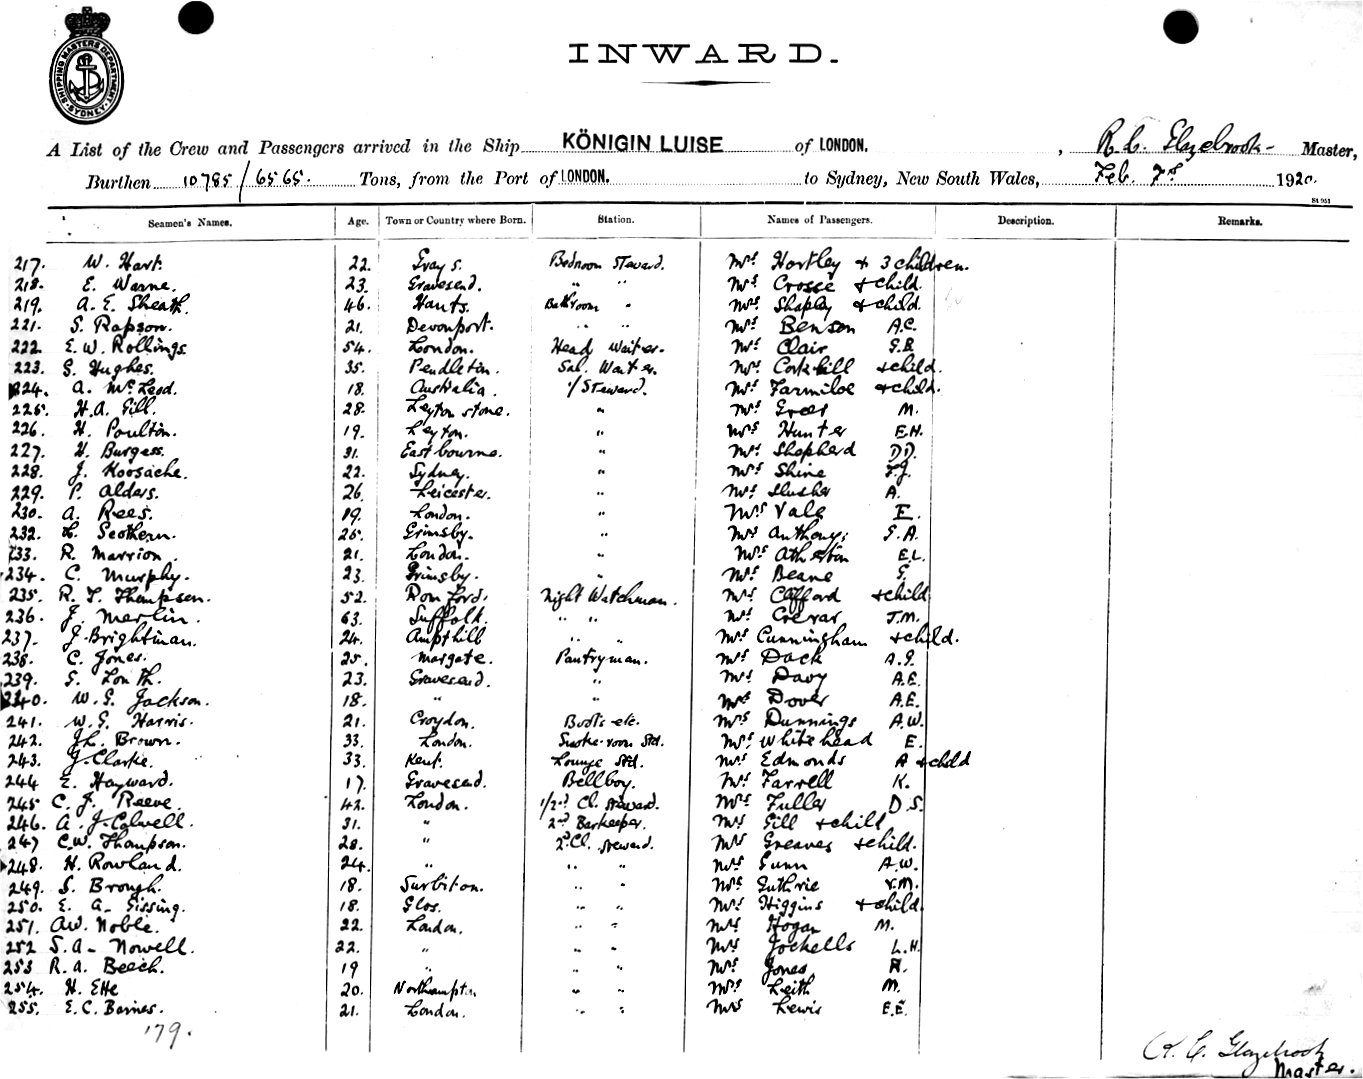 SHIPPING MASTERS DEPARTMENT SYDNEY
INWARD.
A List of the Crew and Passengers arrived in the Ship KÖNIGIN LUISE of LONDON. , R. C. Glazebrook Master,
Burthen 10785/6565. Tons, from the Port of LONDON. to Sydney, New South Wales, Feb. 1920.
St 951
Seamen's Names. Age. Town or Country where Born. Station. Names of Passengers. Description. Remarks.
217. W. Hart. 22. Grays. Bedroom Steward. Mrs Hortley + 3 children.
218. E. Warne. 23. Gravesend. " " Mrs Crosse + child.
219. A. E. Sheath. 46. Hants. Bathroom " Mrs Shapley + child.
221. S. Rapson. 21. Devonport. " " Mrs Benson A.C.
222. E. W. Rollings. 54. London. Head Waiter. Mrs Clair G.B.
223. G. Hughes. 35. Pendleton. Sal. Waiter. Mrs Corkhill + child.
224. A. McLeod. 18. Australia. 1/Steward. Mrs Farmiloe + child.
225. H. A. Gill. 28. Leytonstone. " Mrs M.
226. H. Poulton. 19. Leyton. " Mrs Hunter E.H.
227. H. Burgess. 31. Eastbourne. " Mrs Shepherd D.D.
228. J. Koosache. 22. Sydney. " Mrs Shine
229. P. Alders. 26. Leicester. " Mrs Slusher A.
230. A. Rees. 19. London. " Mrs Vale E.
232. L. Scothern. 25. Grimsby. " Mrs Anthony, G.A.
233. R. Marrion. 21. London. " Mrs Atherton E.L.
234. C. Murphy. 23. Grimsby. " Mrs Beane G.
235. R. T. Thompson. 52. Romford. Night Watchman. Mrs Clifford + child
236. J. Merlin. 63. Suffolk. " " Mrs Crevar J.M.
237. J. Brightman. 24. Ampthill " " Mrs Cunningham + child.
238. C. Jones. 25. Margate. Pantryman. Mrs Dack A.G.
239. G. Louth. 23. Gravesend. " Mrs Davy A.E.
240. W. G. Jackson. 18. " " Mrs Dover A.E.
241. W. G. Harris. 21. Croydon. Boots etc. Mrs Dunnings A.W.
242. J. L. Brown. 33. London. Smoke-room Std. Mrs Whitehead E.
243. J. Clarke. 33. Kent. Lounge Std. Mrs Edmonds A + child
244 E. Hayward. 17. Gravesend. Bellboy. Mrs Farrell K.
245 C. J. Reeve 42. London. 1/2nd Cl. Steward. Mrs Fuller D.S.
246. A. J. Calwell. 31. " 2nd Barkeeper. Mrs Gill + child
247 C. W. Thompson. 28. " 2nd Cl. Steward. Mrs Greaves + child.
248. H. Rowland. 24. " " " Mrs Gunn A.W.
249. S. Brough. 18. Surbiton. " " Mrs Guthrie V.M.
250. E. A. Gissing. 18. Glos. " " Mrs Higgins + child
251. A. W. Noble. 22. London. " " Mrs Hogan M.
252 S. A. Nowell. 22. " " " Mrs Jockells L.H.
253 R. A. Beech. 19 " " " Mrs Jones
254. H. Ette 20. Northampton " " Mrs Leith M.
255. E. C. Barnes. 21. London. " " Mrs Lewis E.E.
179.
R. C. Glazebrook
Master.